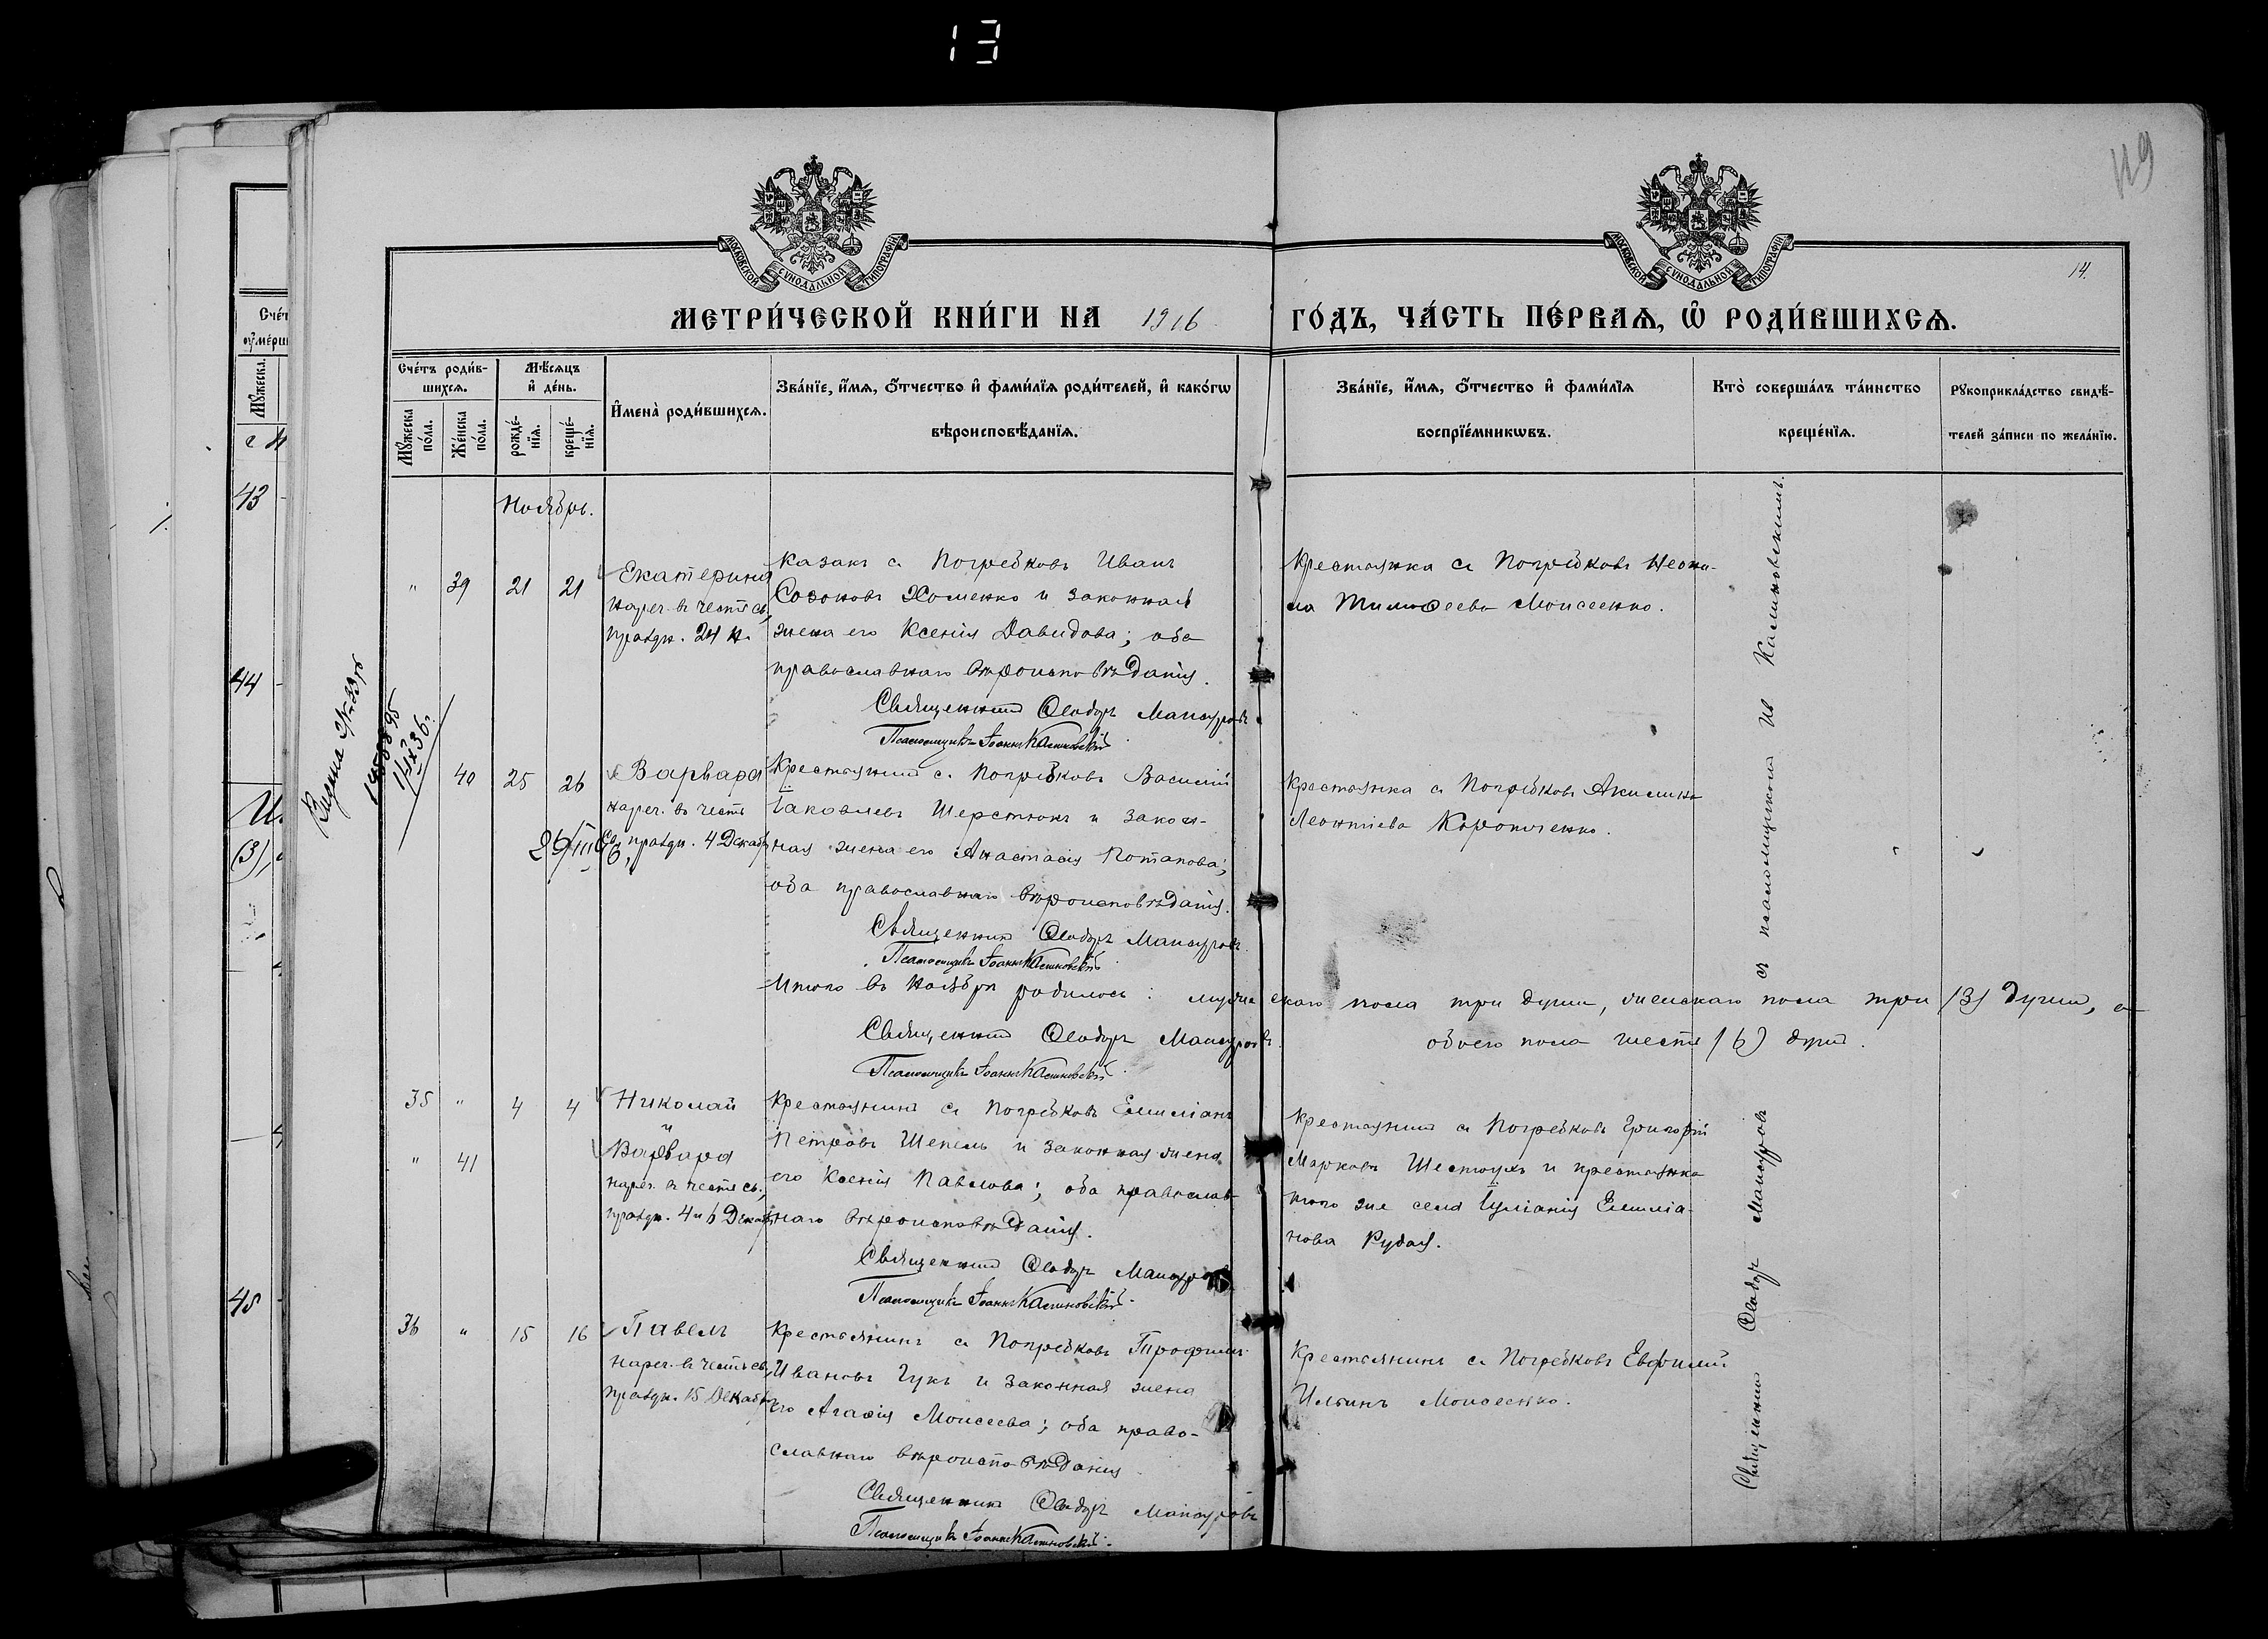 13
119
14.
МОСКОВСКОЙ СѴНОДАЛЬНОЙ ТИПОГРАФІИ
МОСКОВСКОЙ СѴНОДАЛЬНОЙ ТИПОГРАФІИ
МЕТРИ́ЧЕСКОЙ КНИ́ГИ НА 1916 ГО́ДЪ, ЧА́СТЬ ПЕ́РВАѦ, Ѽ РОДИ́ВШИХСѦ.
Сче́тъ роди́в-
шихсѧ.
Мѣ́сѧцъ
и҆ де́нь.
Мꙋ́жеска
по́ла.
Же́нска
по́ла.
рожде́-
нїѧ.
креще́-
нїѧ.
И҆мена̀ роди́вшихсѧ.
Зва́нїе, и҆́мѧ, ѻ҆́тчество и҆ фами́лїѧ роди́телей, и҆ како́гѡ
вѣроисповѣ́данїѧ.
Зва́нїе, и҆́мѧ, ѻ҆́тчество и҆ фами́лїѧ
воспрїе́мникѡвъ.
Кто̀ соверша́лъ та́инство
креще́нїѧ.
Рꙋкоприкла́дство свидѣ́-
телей за́писи по жела́нїю.
Ноябрь.
" 39 21 21 Екатерина
нареч. в честь св.,
праздн. 24 н.
Казакъ с. Погребковъ Иванъ
Созоновъ Хоменко и законная
жена его Ксенія Давидова; оба
православнаго вѣроисповѣданія.
Священникъ Ѳеодоръ Мансуровъ
Псаломщикъ Іоаннъ Калиновскій.
Крестьянка с. Погребковъ Неони-
ла Тимоѳеева Моисеенко.
40 25 26 Варвара
нареч. въ честь
св., праздн. 4 Декабря
Крестьянинъ с. Погребковъ Василій
Іаковлевъ Шерстюкъ и закон-
ная жена его Анастасія Потапова;
оба православнаго вѣроисповѣданія.
Священникъ Ѳеодоръ Мансуровъ.
Псаломщикъ Іоаннъ Калиновскій.
Крестьянка с. Погребковъ Акилина
Леонтіева Коропченко.
Итого въ Ноябрѣ родилось: мужескаго пола три души, женскаго пола три (3) души, а
обоего пола шесть (6) душъ.
Священникъ Ѳеодоръ Мансуровъ.
Псаломщикъ Іоаннъ Калиновскій.
35 " 4 4 Николай
и
" 41 Варвара
нареч. в честь св.,
праздн. 4 и 6 Декабря
Крестьянинъ с. Погребковъ Емиліанъ
Петровъ Шепель и законная жена
его Ксенія Павлова; оба православ-
наго вѣроисповѣданія.
Священникъ Ѳеодоръ Мансуровъ
Псаломщикъ Іоаннъ Калиновскій.
Крестьянинъ с. Погребковъ Григорій
Марковъ Шестухъ и крестьянка
того же села Іуліанія Емиліа-
нова Рудая.
36 " 15 16 Павелъ
нареч. в честь св.,
праздн. 15 Декабря
Крестьянинъ с. Погребковъ Трофимъ
Ивановъ Гукъ и законная жена
его Агафія Моисеева; оба право-
славнаго вѣроисповѣданія.
Священникъ Ѳеодоръ Мансуровъ
Псаломщикъ Іоаннъ Калиновскій.
Крестьянинъ с. Погребковъ Евфимій
Ильинъ Моисеенко.
Священникъ Ѳеодоръ Мансуровъ съ псаломщикомъ Ив Калиновскимъ.
43
44
45